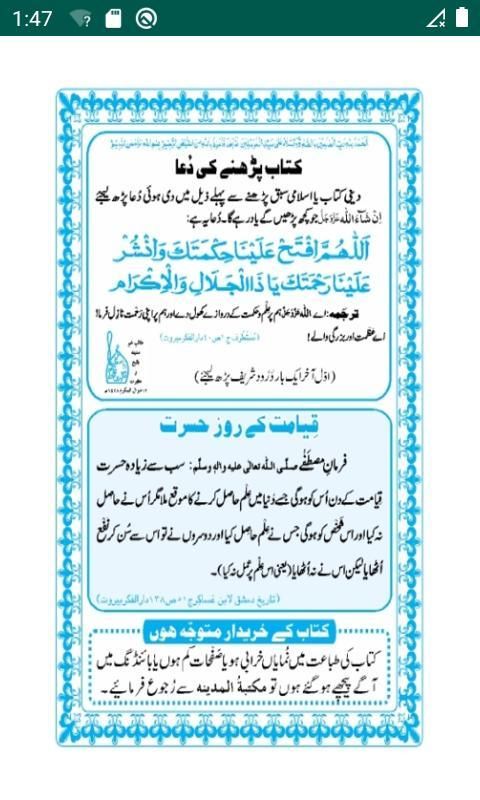 1:47
اَلْحَمْدُ لِلّٰهِ رَبِّ الْعٰلَمِیْنَ وَالصَّلٰوۃُ وَالسَّلَامُ عَلٰی سَیِّدِ الْمُرْسَلِیْنَ اَمَّا بَعْدُ فَاَعُوْذُ بِاللّٰهِ مِنَ الشَّیْطٰنِ الرَّجِیْمِ بِسْمِ اللّٰهِ الرَّحْمٰنِ الرَّحِیْمِ
کتاب پڑھنے کی دُعا
دینی کتاب یا اسلامی سبق پڑھنے سے پہلے ذیل میں دی ہوئی دُعا پڑھ لیجئے
اِنْ شَآءَ اللّٰه عَزَّوَجَلَّ جو کچھ پڑھیں گے یاد رہے گا۔ دُعا یہ ہے:
اَللّٰهُمَّ افْتَحْ عَلَیْنَا حِکْمَتَكَ وَانْشُرْ
عَلَیْنَا رَحْمَتَكَ یَا ذَاالْجَلَالِ وَالْاِکْرَام
ترجمہ: اے اللہ عَزَّوَجَلَّ ہم پر عِلْم و حکمت کے دروازے کھول دے اور ہم پر اپنی رَحْمت نازِل فرما!
اے عظمت اور بزرگی والے! (مُسْتَطْرَف ج۱ص۴۰دارالفکر بیروت)
طالبِ غمِ
مدینہ
بقیع
و
مغفرت
(اوّل آخِر ایک بار دُرُود شریف پڑھ لیجئے)
قِیامت کے روز حسرت
فرمانِ مصطفٰے صلَّی اللہ تعالٰی علیہ والہٖ وسلَّم: سب سے زیادہ حسرت
قیامت کے دن اُس کو ہوگی جسے دُنیا میں عِلْم حاصل کرنے کا موقع ملا مگر اُس نے حاصل
نہ کیا اور اس شخص کو ہوگی جس نے عِلْم حاصل کیا اور دوسروں نے تو اس سے سُن کر نَفْع
اُٹھایا لیکن اس نے نہ اُٹھایا (یعنی اس عِلْم پر عمل نہ کیا)۔
(تاریخ دمشق لابن عَساکِر ج۵۱ص۱۳۸دارالفکر بیروت)
کتاب کے خریدار متوجّه هوں
کتاب کی طباعت میں نُمایاں خرابی ہو یا صَفْحات کم ہوں یا بائنڈنگ میں
آگے پیچھے ہوگئے ہوں تو مکتبۃُ المدینہ سے رُجوع فرمائیے۔